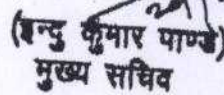 (इन्दु कुमार पाण्डे)
मुख्य सचिव